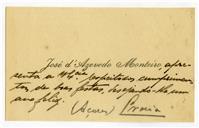 José d'Azevedo Monteiro, apre
senta a V. Exª respeitosos cumprimen
tos de boas festas, desejando-lhe um
ano feliz.
(Açores) Praia